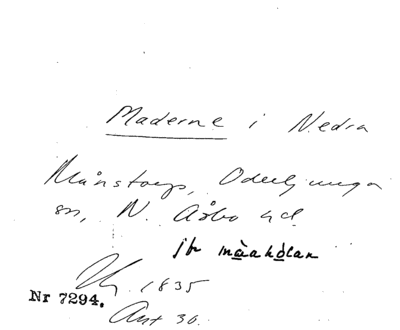 Maderne i Nedra
Månstorp, Oderljunga
sn, N. Åsbo hd.
jfr mäahölan
1835
Nr 7294.
Ant 30.